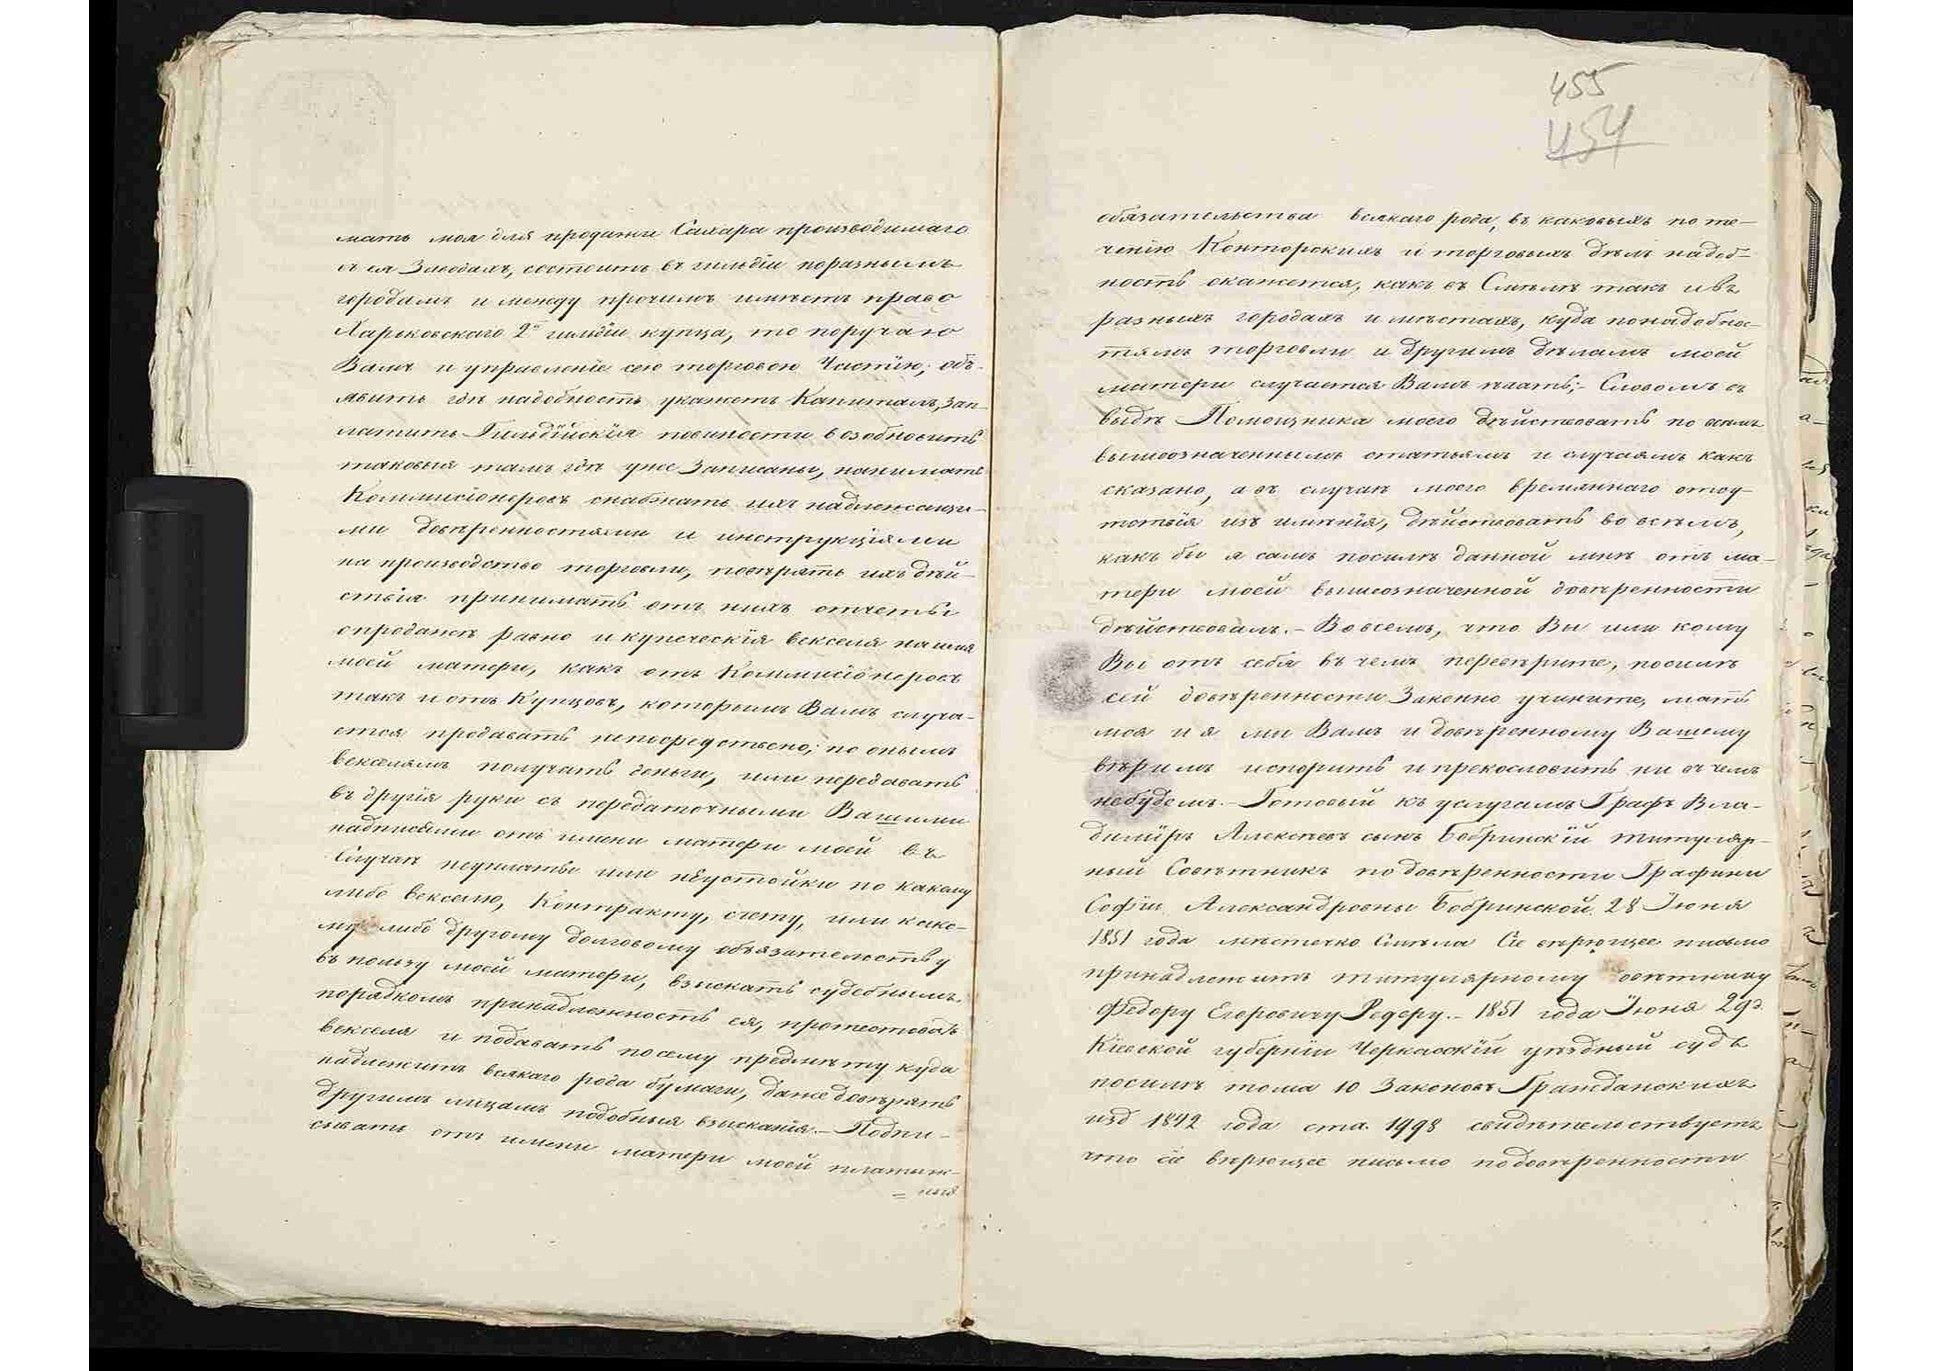 мать моя для продажи Сахара производимаго
въ ея Заводахъ, состоитъ въ гильдіи поразнымъ
городамъ и между прочимъ имѣетъ право
Харьковскаго 2й гильдіи купца, то поручаю
Вамъ и управленіе сею торговою Частію; объ-
явить гдѣ надобность укажетъ Капиталъ, зап-
латить Гильдѣйскія повинности возобновить
таковыя тамъ гдѣ уже Записаны, нанимать
Коммисіонеровъ снабжать ихъ надлежащи-
ми довѣренностями и инструкціями
на производство торговли, повѣрять ихъ дѣй-
ствія принимать отъ нихъ отчеты
о продажѣ равно и купеческія векселя на имя
моей матери, какъ отъ Коммисіонеровъ
такъ и отъ Купцовъ, которымъ Вамъ случа-
ется продавать непосредственно; по онымъ
векселямъ получать деньги, или передавать
въ другія руки съ передаточными Вашими
надписями отъ имени матери моей въ
Случаѣ неуплаты или неустойки по какому
либо векселю, Контракту, счету, или како-
му либо другому долговому обязательству
въ пользу моей матери, взыскать судебнымъ
порядкомъ принадлежность ея, протестовать
векселя и подавать посему предмѣту куда
надлежитъ всякаго рода бумаги, даже довѣрять
другимъ лицамъ подобныя взысканія.– Подпи-
сывать отъ имени матери моей платеж-
=ныя
455
454
обязательства всякаго рода, въ каковыхъ по те-
ченію Конторскихъ и торговыхъ дѣлъ надоб-
ность окажется, какъ въ Смѣлѣ такъ и въ
разныхъ городахъ и мѣстахъ, куда понадобнос-
тямъ торговли и другимъ дѣламъ моей
матери случается Вамъ ѣхать;– Словомъ въ
видѣ Помощника моего дѣйствовать по всѣмъ
вышеозначеннымъ статьямъ и случаямъ какъ
сказано, а въ случаѣ моего временнаго отсу-
тствія изъ имѣнія, дѣйствовать во всемъ,
какъ бы я самъ посилѣ данной мнѣ отъ ма-
тери моей вышеозначенной довѣренности
дѣйствовалъ.– Во всемъ, что Вы или кому
Вы отъ себя въ чемъ перевѣрите, посилѣ
сей довѣренности Законно учините, мать
моя и я ми Вамъ и довѣренному Вашему
вѣримъ испорить и прекословить ни въ чемъ
небудемъ.– Готовый къ услугамъ Графъ Вла-
диміръ Алексѣевъ сынъ Бобринскій титуляр-
ный Совѣтникъ по довѣренности Графини
Софіи Александровны Бобринской. 28 Іюня
1851 года мѣстечко Смѣла Сіе вѣрющее письмо
принадлежитъ титулярному совѣтнику
Федору Егоровичу Редеру.– 1851 года Іюня 29д.
Кіевской губерніи Черкасскій уѣздный судъ
посилѣ тома 10 Законовъ Гражданскихъ
изд 1842 года ста. 1998 свидѣтельствуетъ
что сіе вѣрющее письмо по довѣренности